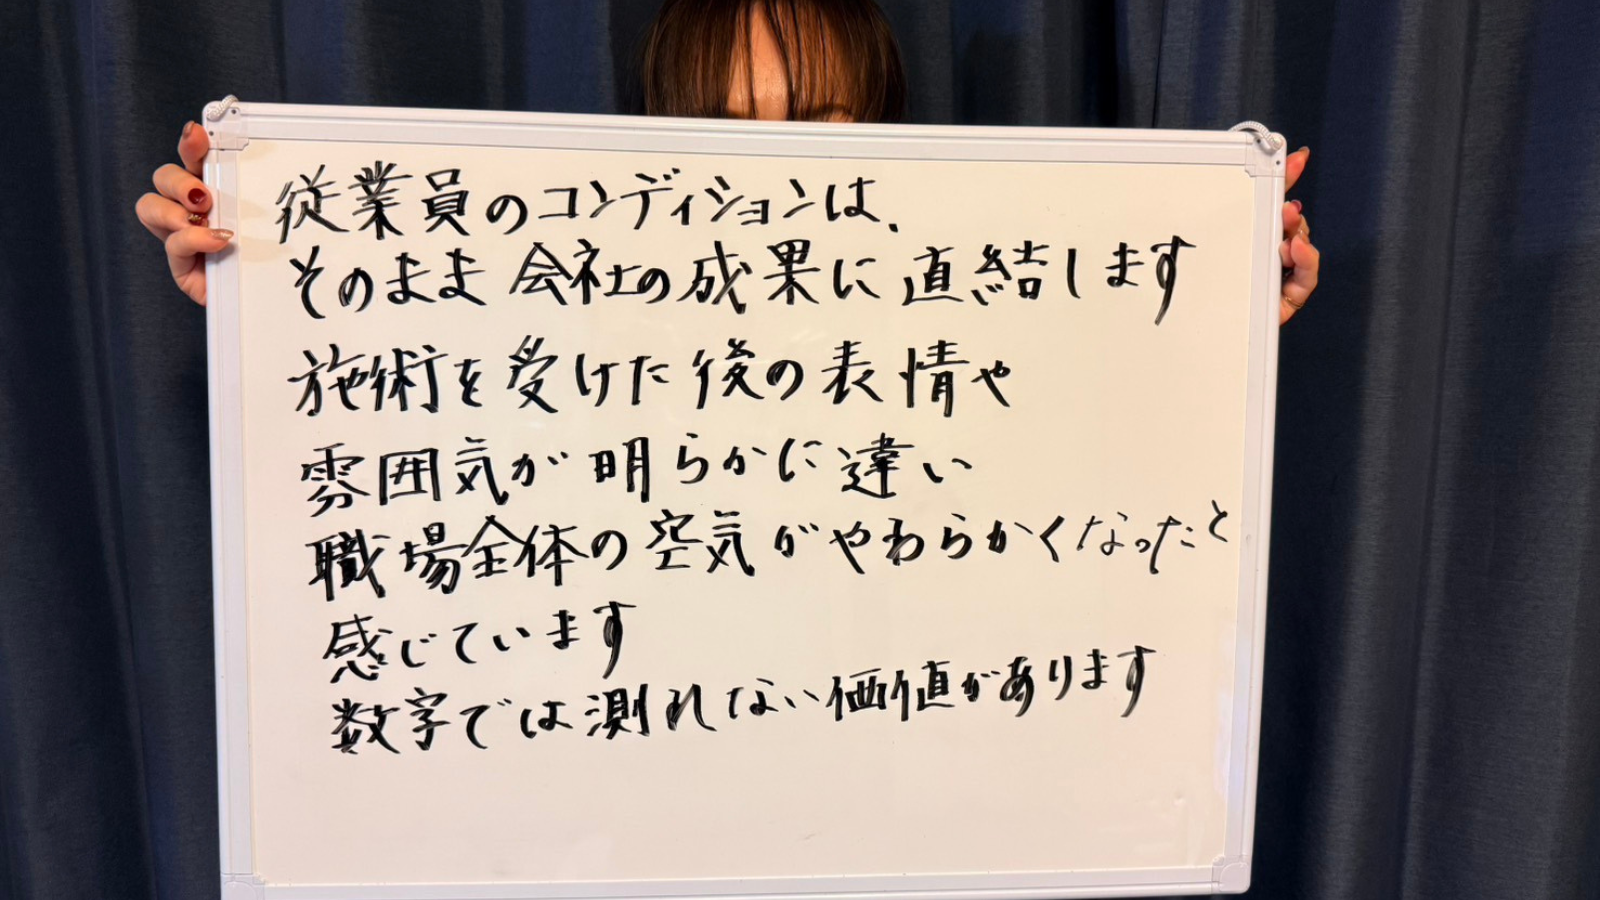 従業員のコンディションは、
そのまま会社の成果に直結します
施術を受けた後の表情や
雰囲気が明らかに違い
職場全体の空気がやわらかくなったと
感じています
数字では測れない価値があります